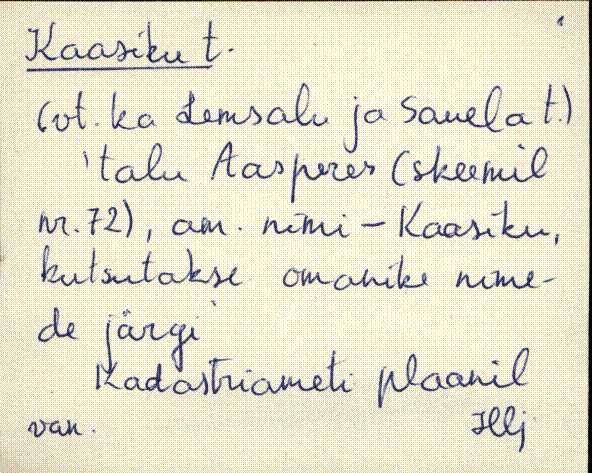 Kaasiku t.
(vt. ka Lemsalu ja Sauela t.)
'talu Aasperes (skeemil
nr. 72), am. nimi – Kaasiku,
kutsutakse omanike nime-
de järgi'
Kadastriameti plaanil
van. Hlj